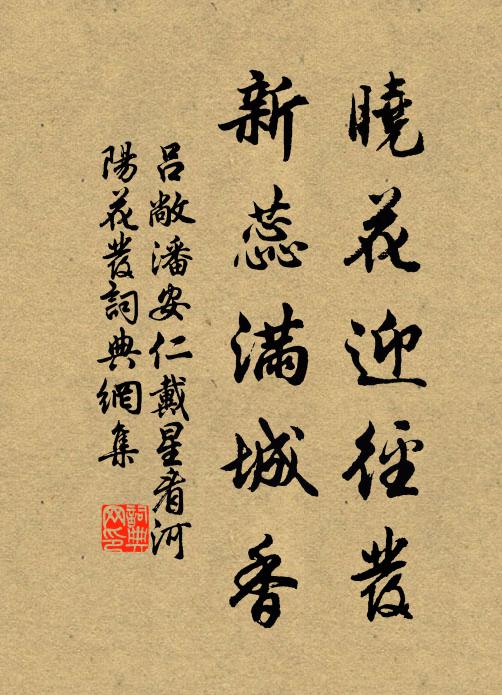 曉花迎徑發
新蕊滿城香
呂敞潘安仁戴星看河
陽花發詞典網集
詞典
网印